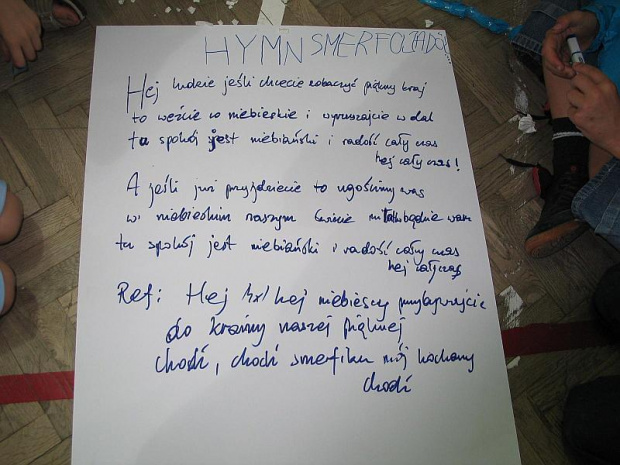 HYMN SMERFOLIADÓ
Hej ludzie jeśli chcecie zobaczyć piękny kraj
to weźcie co niebieskie i wyruszajcie w dal
tu spokój jest niebiański i radość cały czas
hej cały czas!
A jeśli już przyjdziecie to ugościmy was
w niebieskim naszym świecie miło będzie wam
tu spokój jest niebiański i radość cały czas
hej cały czas
Ref: Hej hej niebiescy przybywajcie
do krainy naszej pięknej
Chodź, chodź smerfiku mój kochany
chodź